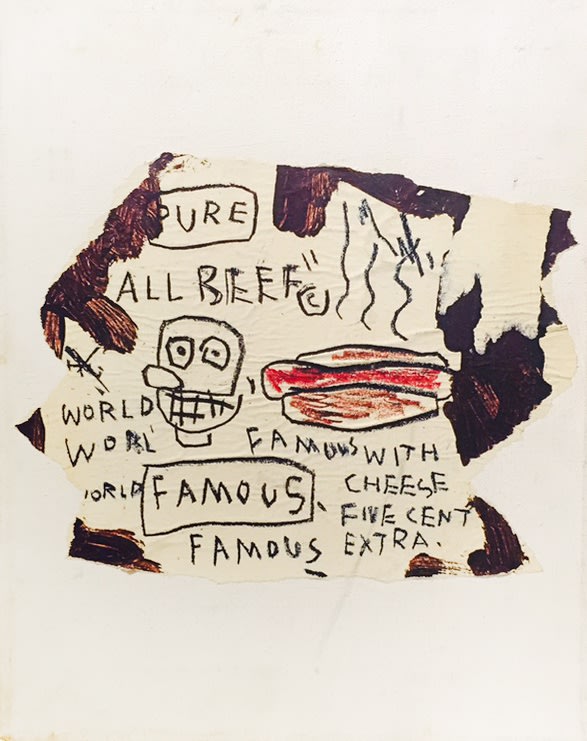 PURE
ALL BEEF" ©
WORLD
WORL
FAMOUS WITH
ORLD FAMOUS. CHEESE
FIVE CENT
FAMOUS EXTRA.